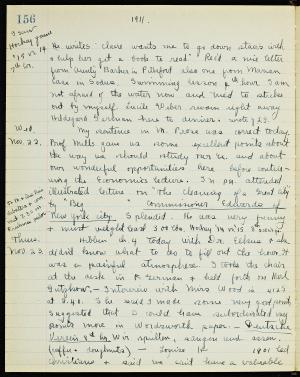 156
1911.
I saw
Hockey game
'15 vs '14
7th hr.
He writes. Clare wants me to go down stairs with
& help her get a book to read. Rec'd a nice letter
from Aunty Barker in Pittsford also one from Marian
Case in Sodus. Swimming lesson 6th hour. I am
not afraid of the water now and tried to strike
out by myself. Lucile Weber remain right away
Hildegard German here to dinner. wrote
Wed.
Nov. 22.
My sentence in M. Prose was correct today.
Prof Mills gave us some excellent points about
the way we should study our Ec. and about
our wonderful opportunities here before continuing
the Economics lecture. In p.m. attended
illustrated lecture on "The cleaning of a Great city
by "Big" Commissioner Edwards of
New York city. Splendid. He was very funny
& must weigh at least 300 lbs. Hockey
Thurs.
Nov. 23.
ch. 4 today with Dr. &
didn't know what to do to fill out the hour. It
was a painful atmosphere. I took the chair
at the desk in German & held forth on Karl
Gutzkow. - Interview with Miss Wood
at 8.40. She said I made some very good points
suggested that I could have subordinated my
points more in Wordsworth paper - Deutsche
Verein 8th hr. Wir spielten, sangen und assen.
(coffee & doughnuts) - 1901 led
& said we said have a valuable